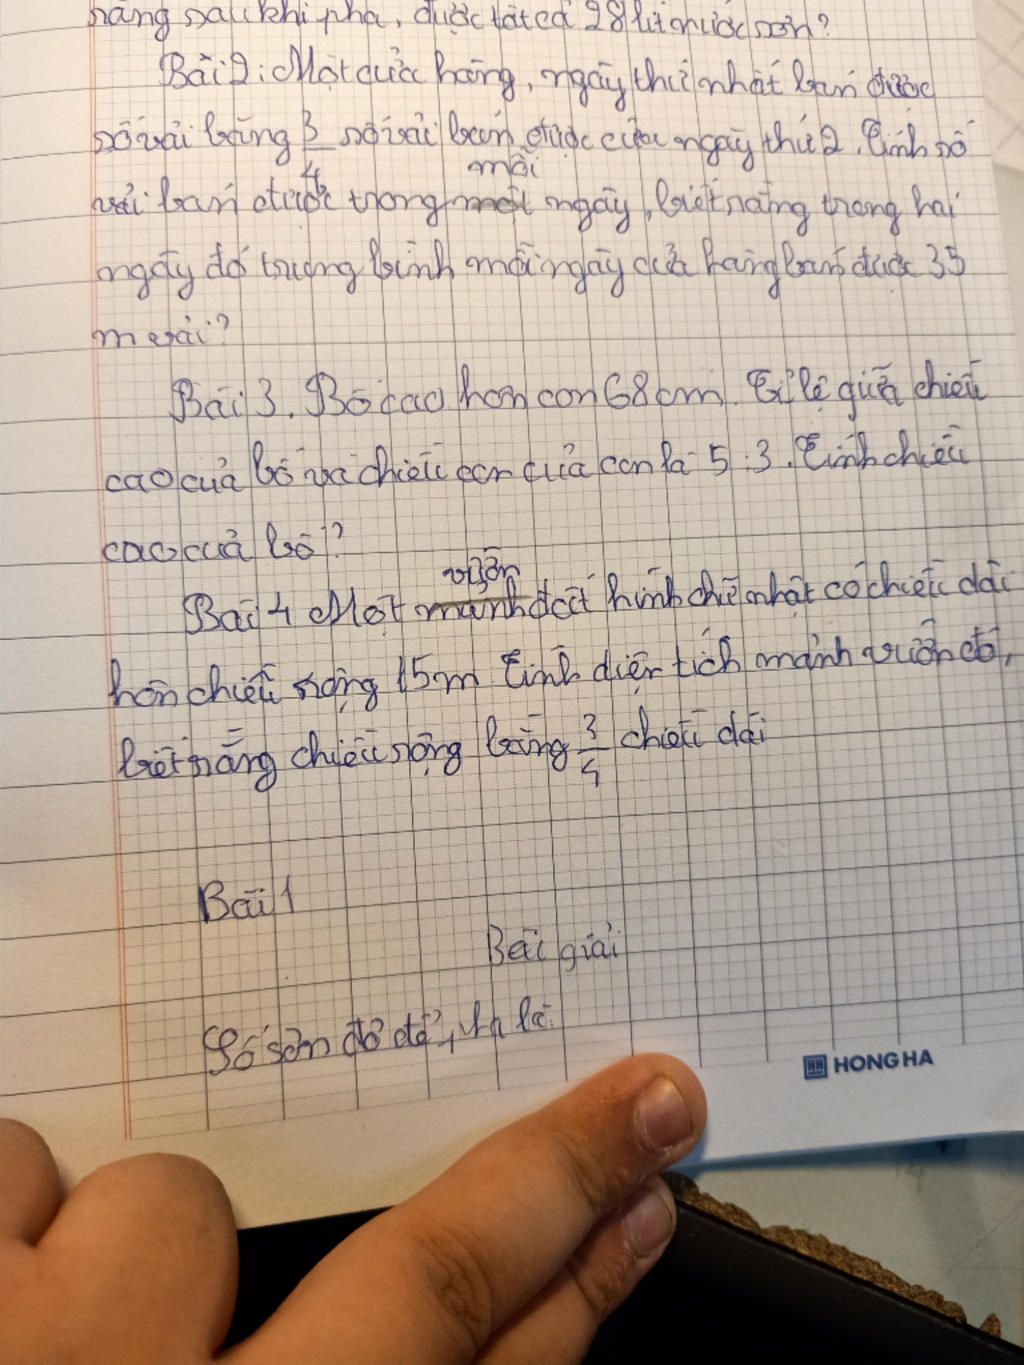 rằng sau khi pha, được tất cả 28 lít nước sơn?
Bài 2: Một cửa hàng, ngày thứ nhất bán được
số vải bằng 3/4 số vải bán được của ngày thứ 2. Tính số
mỗi
vải bán được trong một ngày, biết rằng trong hai
ngày đó trung bình mỗi ngày cửa hàng bán được 35
m vải?
Bài 3. Bố cao hơn con 68cm. Tỉ lệ giữa chiều
cao của bố và chiều con của con là 5:3. Tính chiều
cao của bố?
vườn
Bài 4 Một mảnh đất hình chữ nhật có chiều dài
hơn chiều rộng 15m Tính diện tích mảnh vườn đó,
biết rằng chiều rộng bằng 3/4 chiều dài
Bài 1
Bài giải
Số sơn đỏ để là:
HH HONG HA